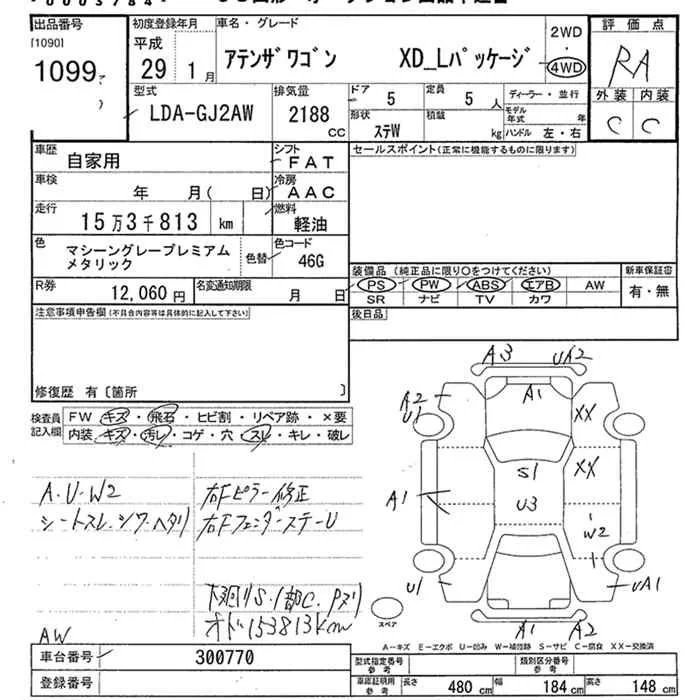 出品番号
[1090]
1099
初度登録年月
平成
29 年 1 月
車名・グレード
アテンザワゴン XD_Lパッケージ
2WD
・
4WD
評価点
RA
外装 内装
C C
型式
LDA-GJ2AW
排気量
2188 cc
ドア 5
定員 5 人
ディーラー・並行
形状 ステW
積載 kg
モデル年式 年
ハンドル 左・右
車歴 自家用
シフト FAT
セールスポイント(正常に機能するものに限ります)
車検 年 月( 日)
冷房 AAC
走行 15万3千813 km
燃料 軽油
色 マシーングレープレミアム
メタリック
色替
色コード 46G
装備品 (純正品に限り○をつけてください)
新車保証書
PS PW ABS エアB AW
有・無
SR ナビ TV カワ
R券 12,060 円
名変通知期限 月 日
後日品
注意事項申告欄(不具合内容等は具体的に記入して下さい)
修復歴 有〔箇所 〕
検査員
記入欄
FW キズ・飛石・ヒビ割・リペア跡・×要
内装・キズ・汚レ・コゲ・穴・スレ・キレ・破レ
A3
A2
U1
A1
XX
A1
S1
XX
U3
W2
U1
A1
A2
A・U・W2
シートスレ、シワ・ヘタリ
右Fピラー修正
右FフェンダーステーU
オドメ153813km
AW
スペア
A-キズ E-エクボ U-凹み W-補修跡 S-サビ C-腐食 XX-交換済
車台番号 300770
登録番号
型式指定番号
参考
類別区分番号
参考
車庫証明用
参考
長さ 480 cm
幅 184 cm
高さ 148 cm